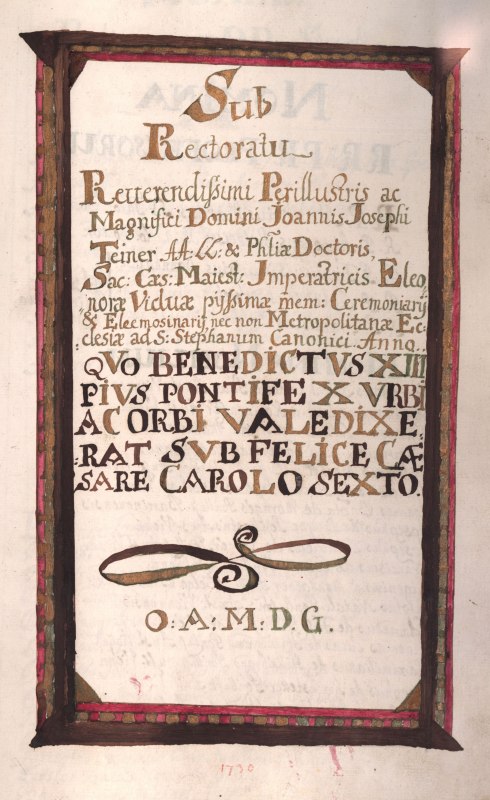 Sub
Rectoratu
Reverendißimi Perillustris ac
Magnifici Domini Joannis Josephi
Teiner AA: LL: & Phliæ Doctoris,
Sac: Cæs: Maiest: Imperatricis Eleo,
noræ Viduæ pijssimæ mem: Ceremoniarij
& Eleemosinarij, nec non Metropolitanæ Ec,
clesiæ ad S: Stephanum Canonici Anno
QVO BENEDICTVS XIII
PIVS PONTIFEX VRBI
AC ORBI VALEDIXE,
RAT SVB FELICE CÆ
SARE CAROLO SEXTO.
O: A: M: D. G.
1730